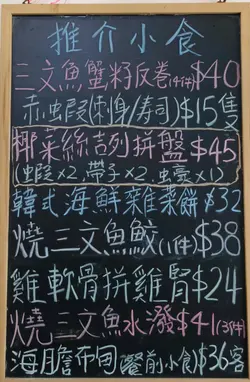 推介小食
三文魚蟹籽反卷(4件)$40
赤虫叚(刺身/寿司)$15隻
椰菜絲吉列拼盤$45
(虫叚×2,帶子×2,虫豪×1)
韓式海鮮雜菜餅$32
燒三文魚鮫(1件)$38
雞軟骨拼雞腎$24
燒三文魚水潑$41(3件)
海膽布甸(餐前小食)$36客